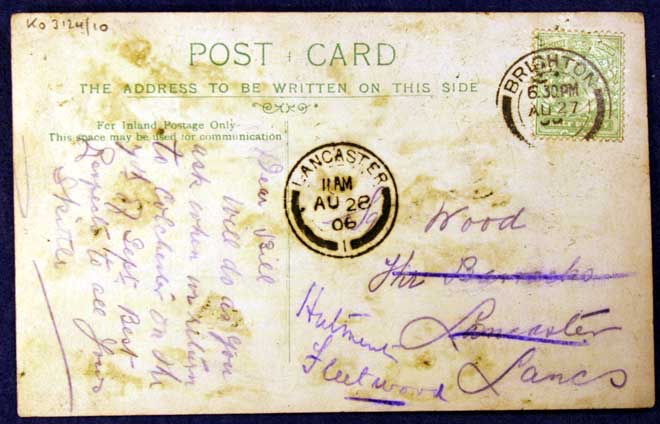 KO 3124/10
POST CARD
THE ADDRESS TO BE WRITTEN ON THIS SIDE
For Inland Postage Only
This space may be used for communication
BRIGHTON
6.30PM
AU 27
06
LANCASTER
11 AM
AU 28
06
1
Dear Bill
Will do as you
ask when we return
to Colchester on the
7 Sept Best
Respects to all
Wood
The Barracks
Lancaster
Lancs
Hutment
Fleetwood